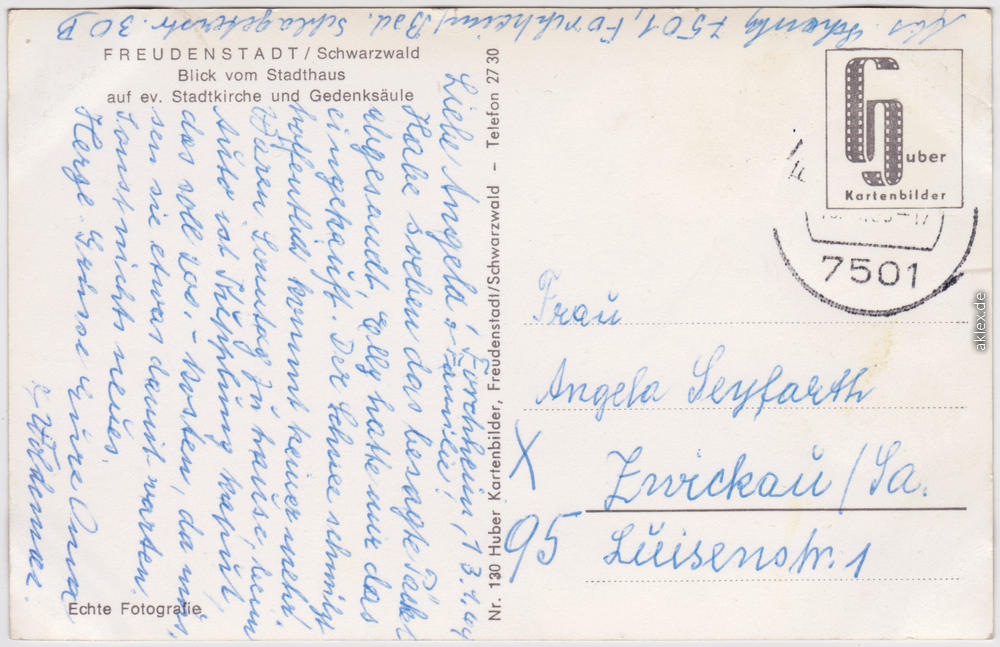 Abs. Schantz 7501, Forchheim/Bad. Schlageterstr. 30 B
FREUDENSTADT / Schwarzwald
Blick vom Stadthaus
auf ev. Stadtkirche und Gedenksäule
Forchheim, 13.4.
Liebe Angela, Familie!
Habe soeben das besagte Packet
abgesandt. Elly hatte mir das
eingekauft. Der Schnee schmilzt
hoffentlich kommt keiner mehr.
Waren Sonntag zu hause, beim
Auto ist Kupplung kaputt,
das soll 200.- kosten, da müs
sen sie etwas damit warten.
Sonst nichts neues.
Herzl. Grüsse Eure Oma
u. Waldemar.
Echte Fotografie
Nr. 130 Huber Kartenbilder, Freudenstadt/Schwarzwald – Telefon 27 30
Huber
Kartenbilder
7501
Frau
Angela Seyfarth
X
Zwickau / Sa.
95 Luisenstr. 1
aklex.de